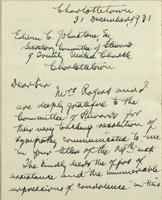 Charlottetown
31 December 1931
Edwin C. Johnstone Esq
Secretary Committee of Stewards
of Trinity United Church
Charlottetown
Dear Sir
Mrs Rogers and I
are deeply grateful to the
Committee of Stewards for
their very touching resolution of
sympathy communicated to me
in your letter of the 29th inst
The kindly deeds the offers of
assistance and the innumerable
expressions of condolence in this